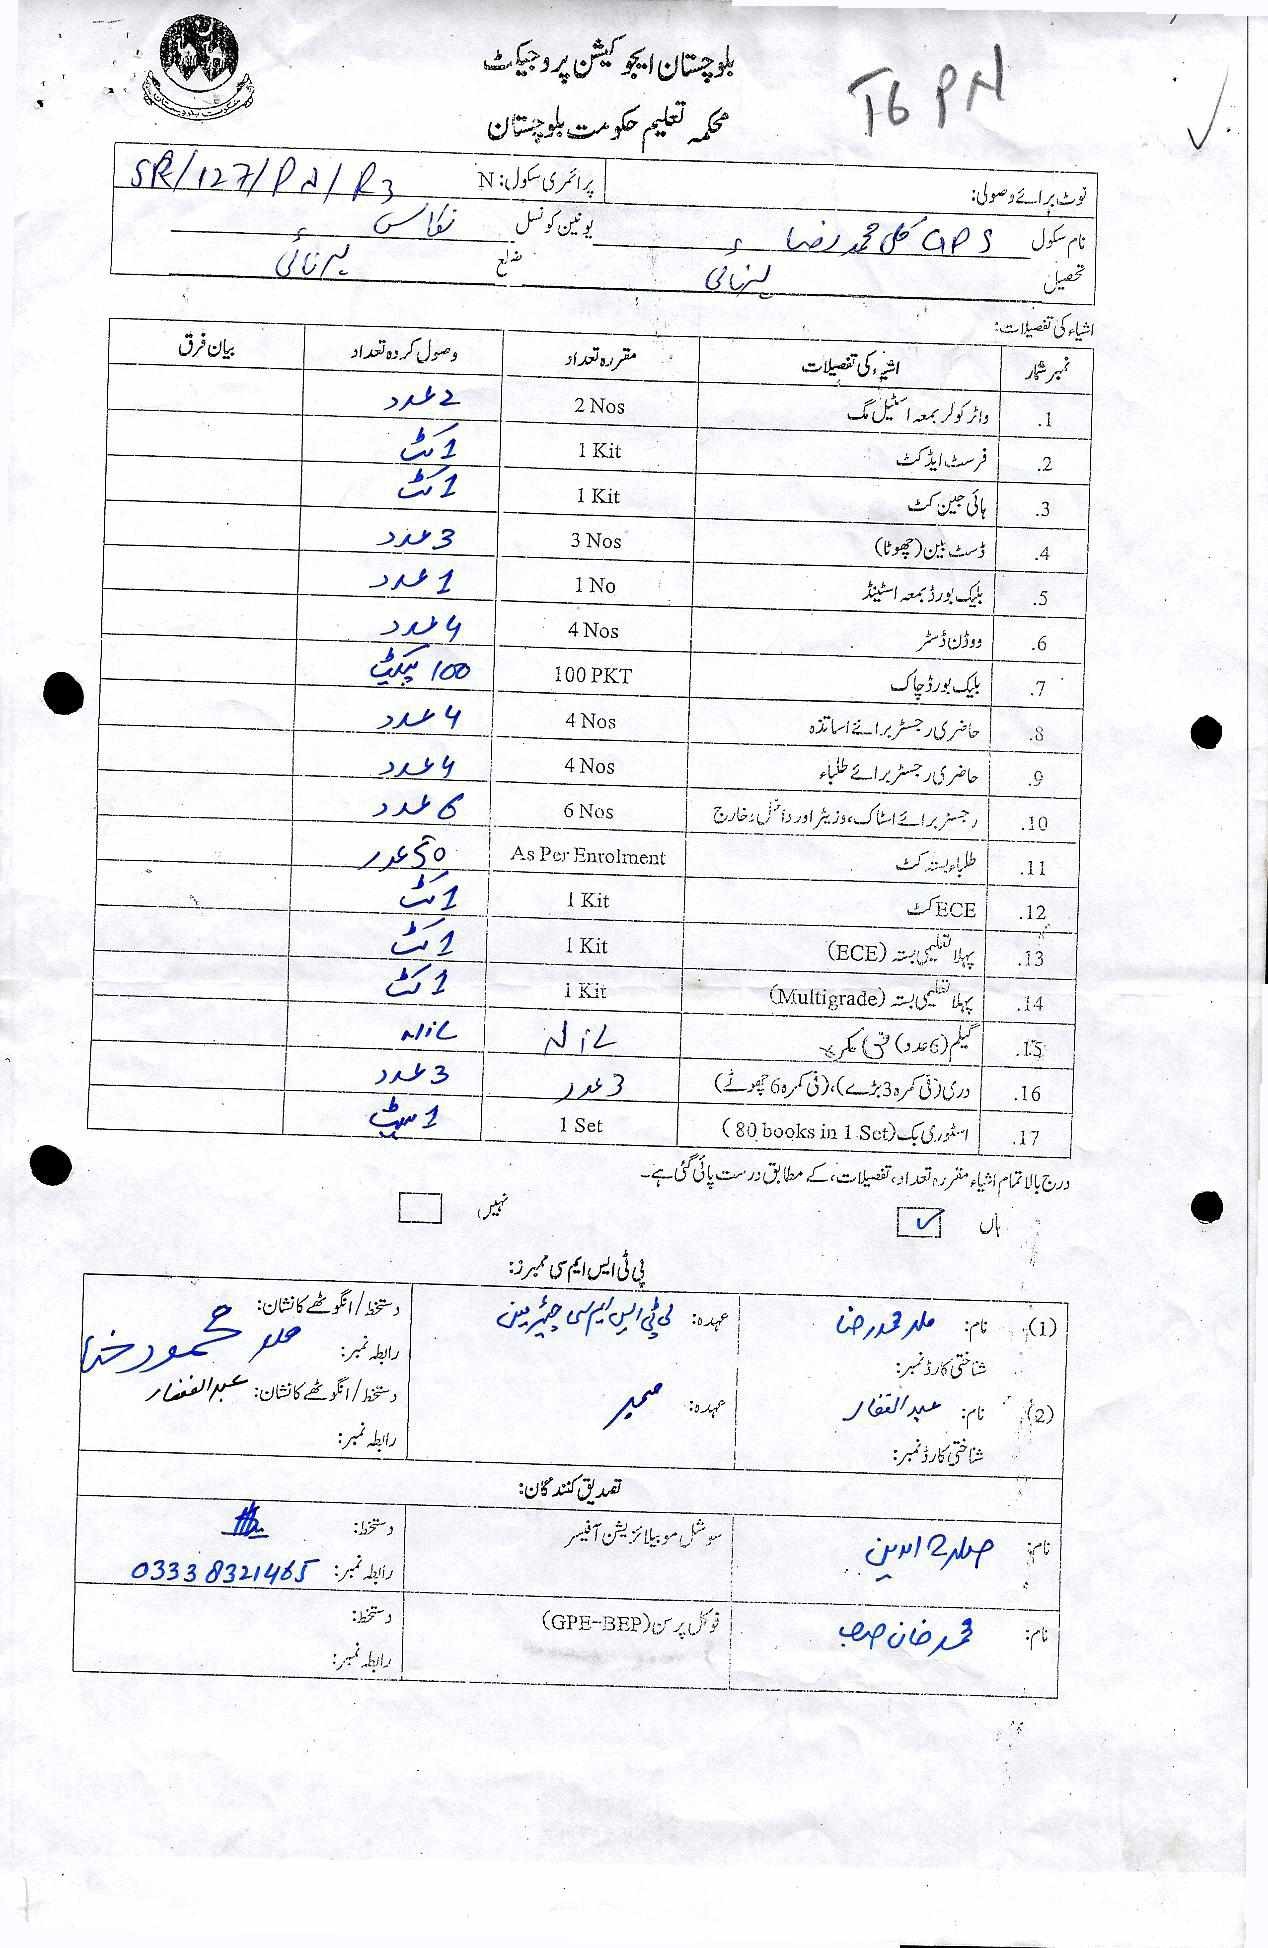 بلوچستان ایجوکیشن پروجیکٹ
محکمہ تعلیم حکومت بلوچستان
T6 PN
نوٹ برائے وصولی: پرائمری سکول: N SR/127/PN/R3
نام سکول GPS گل محمد رضا یونین کونسل
تحصیل ضلع
اشیاء کی تفصیلات:
نمبر شمار اشیاء کی تفصیلات مقررہ تعداد وصول کردہ تعداد بیان فرق
1. واٹر کولر بمعہ اسٹیل مگ 2 Nos 2 عدد
2. فرسٹ ایڈ کٹ 1 Kit 1 کٹ
3. ہائی جین کٹ 1 Kit 1 کٹ
4. ڈسٹ بین (چھوٹا) 3 Nos 3 عدد
5. بلیک بورڈ بمعہ اسٹینڈ 1 No 1 عدد
6. ووڈن ڈسٹر 4 Nos 4 عدد
7. بلیک بورڈ چاک 100 PKT 100 پیکیٹ
8. حاضری رجسٹر برائے اساتذہ 4 Nos 4 عدد
9. حاضری رجسٹر برائے طلباء 4 Nos 4 عدد
10. رجسٹر برائے اسٹاک، وزیٹر اور داخل خارج 6 Nos 6 عدد
11. طلباء بستہ کٹ As Per Enrolment 50 عدد
12. ECE کٹ 1 Kit 1 کٹ
13. پہلا تعلیمی بستہ (ECE) 1 Kit 1 کٹ
14. پہلا تعلیمی بستہ (Multigrade) 1 Kit 1 کٹ
15. گیلم (6 عدد) فی کمرہ
16. دری (فی کمرہ 3 بڑے)، (فی کمرہ 6 چھوٹے) 3 عدد 3 عدد
17. اسٹوری بک (80 books in 1 Set) 1 Set 1 سیٹ
درج بالا تمام اشیاء مقررہ تعداد، تفصیلات، کے مطابق درست پائی گئی ہے۔
ہاں ✓ نہیں
پی ٹی ایس ایم سی ممبرز:
(1) نام: محمد رضا عہدہ: پی ٹی ایس ایم سی چیئرمین دستخط/انگوٹھے کا نشان:
شناختی کارڈ نمبر: رابطہ نمبر:
(2) نام: عبدالغفار عہدہ: ممبر دستخط/انگوٹھے کا نشان: عبدالغفار
شناختی کارڈ نمبر: رابطہ نمبر:
تصدیق کنندگان:
نام: سوشل موبیلائزیشن آفیسر دستخط:
رابطہ نمبر: 0333 8321465
نام: محمد خان فوکل پرسن (GPE-BEP) دستخط:
رابطہ نمبر: